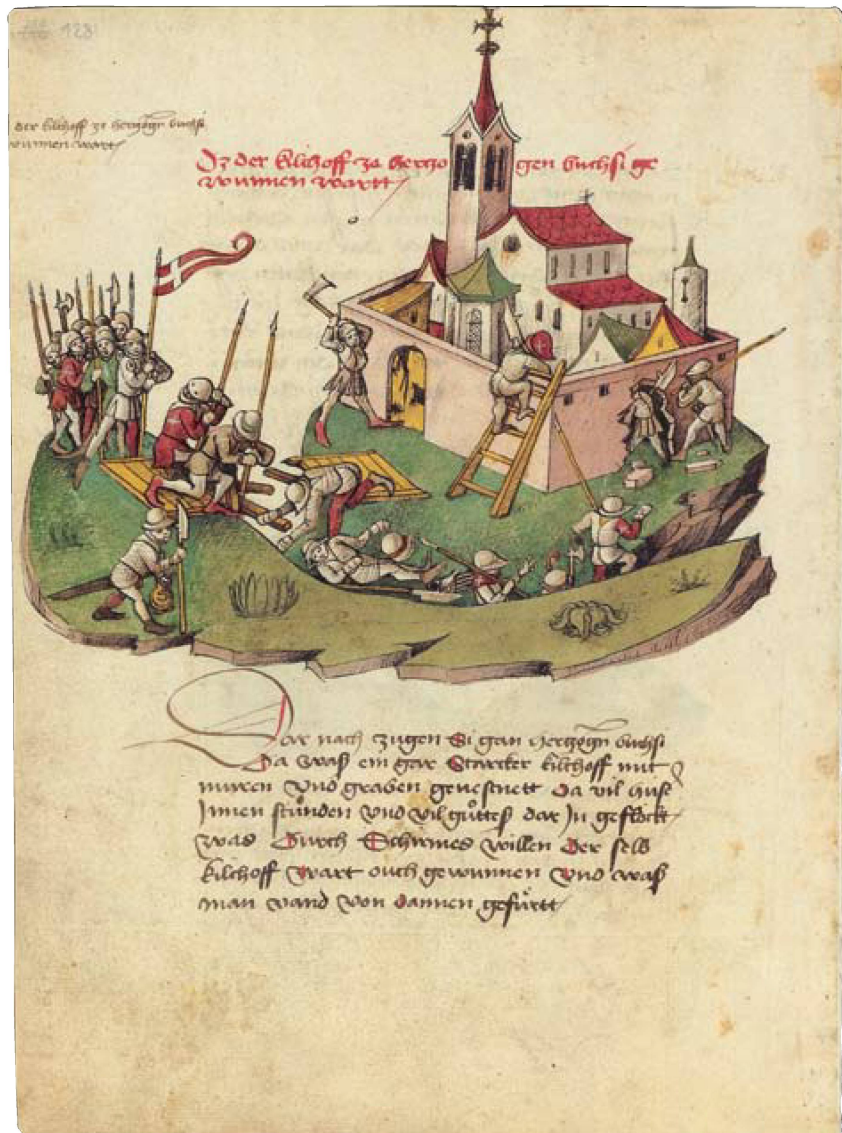 128
der kilchoff ze hertzogen buchsi
wunnen wart
Dz der kilchoff ze hertzo gen buchsi ge
wunnen wartt
Dar nach zugen si gan hertzogen buchsi
Da waß ein gar starcker kilchoff mit
muren und graben geuestnett Da vil huß
Innen stůnden und vil gůttes dar In geflöckt
was Durch Schirmes willen Der selb
kilchoff wart ouch gewunnen und waß
man vand von dannen gefürtt